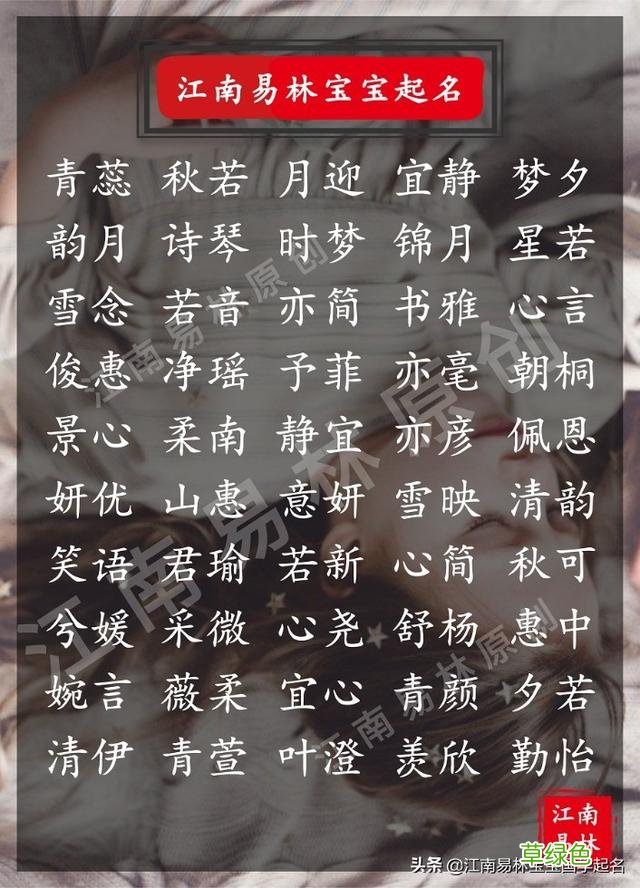 江南易林宝宝起名
青蕊 秋若 月迎 宜静 梦夕
韵月 诗琴 时梦 锦月 星若
雪念 若音 亦简 书雅 心言
俊惠 净瑶 予菲 亦毫 朝桐
景心 柔南 静宜 亦彦 佩恩
妍优 山惠 意妍 雪映 清韵
笑语 君瑜 若新 心简 秋可
兮媛 采微 心尧 舒杨 惠中
婉言 薇柔 宜心 青颜 夕若
清伊 青萱 叶澄 羡欣 勤怡
江南易林原创
江南易林原创
江南易林原创
江南
易林
草绿色
头条 @江南易林宝宝国学起名